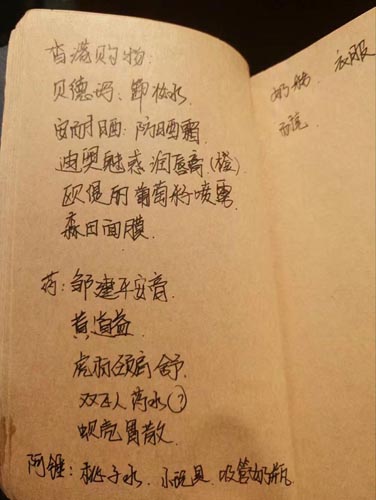 香港购物:
贝德玛: 卸妆水
安耐晒: 防晒霜
迪奥魅惑润唇膏(橙)
欧缇丽葡萄籽喷雾
森田面膜
药: 邹健平安膏
黄道益
虎标颈肩舒
双飞人药水(?)
蚬壳胃散
阿锺: 桃子水 小玩具 吸管奶瓶
衣服
面霜